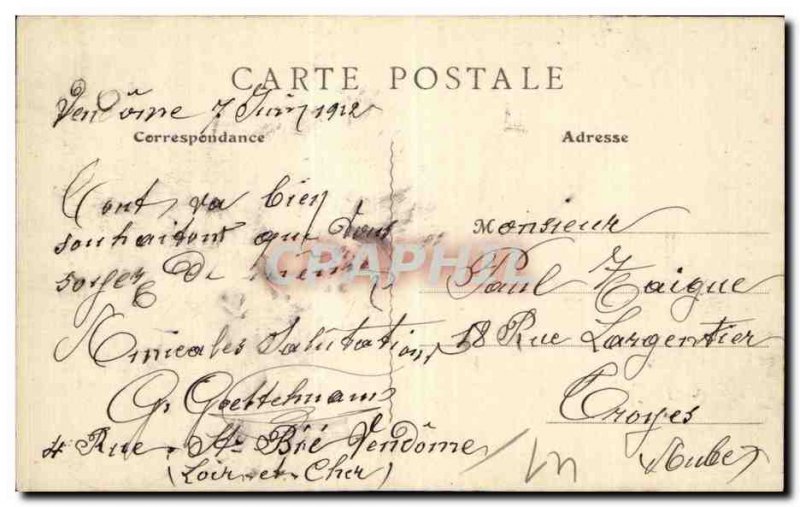 CARTE POSTALE
Vendôme 7 Juin 1912
Correspondance
Tout va bien
souhaitons que vous
soyez de même
Amicales Salutations
G. Goettelmann
4 Rue St Bié Vendôme
(Loir et Cher)
Adresse
Monsieur
Paul Taigue
18 Rue Largentier
Troyes
(Aube)
CRAPHIL